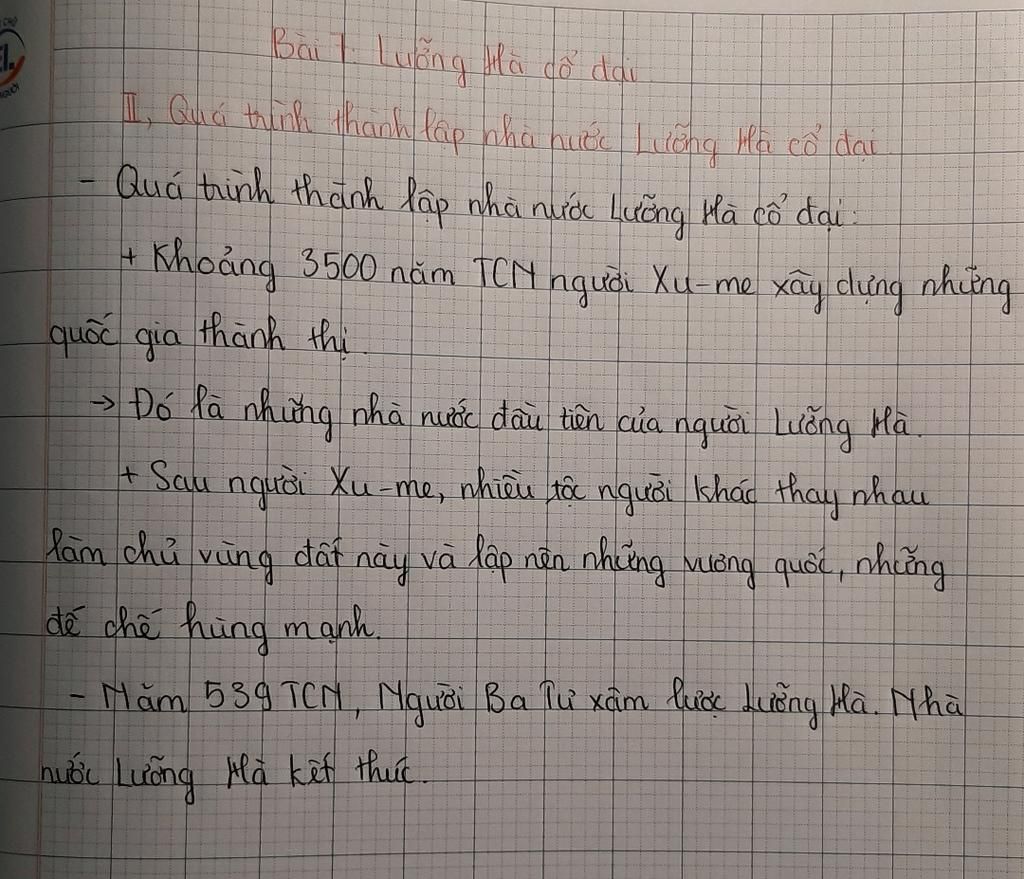 Bài 7. Lưỡng Hà cổ đại
II, Quá trình thành lập nhà nước Lưỡng Hà cổ đại
- Quá trình thành lập nhà nước Lưỡng Hà cổ đại:
+ Khoảng 3500 năm TCN người Xu-me xây dựng những
quốc gia thành thị.
→ Đó là những nhà nước đầu tiên của người Lưỡng Hà.
+ Sau người Xu-me, nhiều tộc người khác thay nhau
làm chủ vùng đất này và lập nên những vương quốc, những
đế chế hùng mạnh.
- Năm 539 TCN, Người Ba Tư xâm lược Lưỡng Hà. Nhà
nước Lưỡng Hà kết thúc.